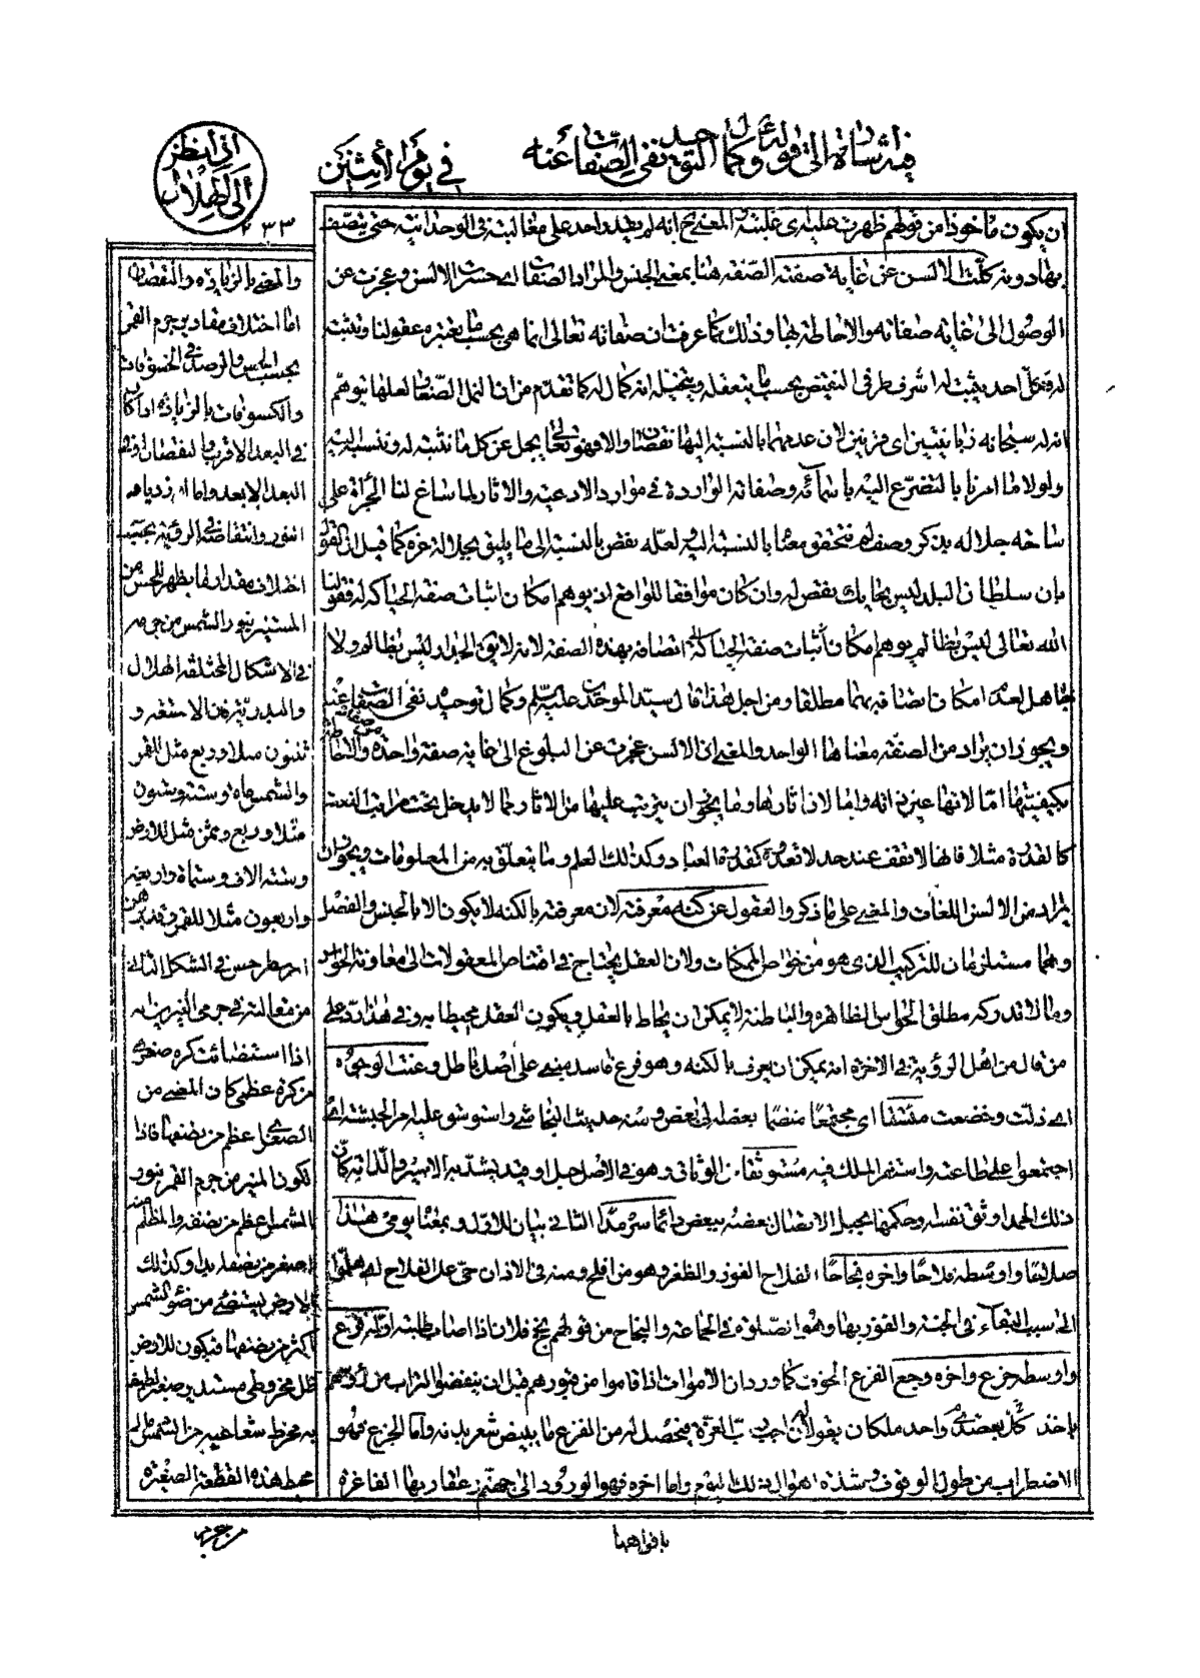 فيه اشارة الى قوله ع وكمال التوحيد نفى الصفات عنه
في يوم الاثنين
اذا نظر
الى الهلال
٢٣٣
ان يكون مأخوذا من قولهم ظهرت عليه اى غلبته والمعنى ح انه لم يقدر احد على مغالبته فى الوحدانية حتى يتصف
بها دونه كلت الالسن عن غاية صفته الصفة هنا بمعنى الجنس والمراد الصفات اى حسرت الالسن وعجزت عن
الوصول الى غاية صفاته والاحاطة بها وذلك كما عرفت ان صفاته تعالى انما هى بحسب ما يعتبره عقولنا وتثبته
له فكل احد يثبت له اشرف طرفى النقيض بحسب ما يتعقله ويتخيل انه كمال له كما تقدم من ان النمل الصغار لعلها توهم
ان لله سبحانه زبانيتين اى قرنين لان عدمهما بالنسبة اليها نقصان والا فهو تعالى يجل عن كل ما نثبته له وننسبه اليه
ولولا ما امرنا بالتضرع اليه باسمائه وصفاته الواردة فى موارد الادعية والاثار لما ساغ لنا الجرأة على
ساحة جلاله بذكر وصف له فتحقق معنا بالنسبة اليه لعله نقص بالنسبة الى ما يليق بجلال عزه كما قيل ان القول
بان سلطان البلد ليس بحايك نقص له وان كان موافقا للواقع اذ يوهم امكان اثبات صفة الحياكة له فقولنا
الله تعالى ليس بظالم يوهم امكان اتصافه بهذه الصفة لانه لا يق الجدار ليس بظالم ولا
جاهل لعدم امكان اتصافه بهما مطلقا ومن اجل هذا قال سيد الموحدين عليه السلم وكمال توحيده نفى الصفات عنه
ويجوز ان يراد من الصفة معناها الواحد والمعنى ان الالسن عجزت عن البلوغ الى غاية صفة واحدة من صفاته والاحاطة
بكيفيتها اما لانها عين ذاته واما لان اثارها وما يجوز ان يترتب عليها من الاثار مما لا يدخل تحت مراتب العد
كالقدرة مثلا فانها لا تقف عند حد لا تعدوه كقدرة العباد وكذلك العلم وما يتعلق به من المعلومات ويجوز ان
يراد من الالسن اللغات والمعنى على ما ذكر والعقول عن كنه معرفته لان معرفته بالكنه لا يكون الا بالجنس والفصل
وهما مستلزمان للتركيب الذى هو من خواص الممكنات ولان العقل يحتاج فى اقتناص المعقولات الى معاونة الحواس
وما لا تدركه مطلق الحواس الظاهرة والباطنة لا يمكن ان يحاط بالعقل ويكون العقل محيطا به وفى هذا رد على
من قال من اهل الرؤية فى الاخرة انه يمكن ان يعرف بالكنه وهو فرع فاسد مبنى على اصل باطل وعنت الوجوه
اى ذلت وخضعت متسقا اى مجتمعا منضما بعضه الى بعض ومنه حديث النجاشى واستوسق عليه امر الحبشة اى
اجتمعوا على طاعته واستقر الملك فيه مستوثقا من الوثاق وهو فى الاصل حبل او قيد يشد به الاسير والدابة كأن
ذلك الحمد اوثق نفسه وحكمها بحبل الاتصال بعضه ببعض دائما سرمدا الثانى بيان للاول وبمعناه يومى هذا
صلاحا واوسطه فلاحا واخره نجاحا الفلاح الفوز والظفر وهو من افلح ومنه فى الاذان حى على الفلاح اى هلموا
الى سبب البقاء فى الجنة والفوز بها وهو الصلوة فى الجماعة والنجاح من قولهم نجح فلان اذا اصاب طلبته اوله فزع
واوسطه جزع واخره وجع الفزع الخوف كما ورد ان الاموات اذا قاموا من قبورهم قبل ان ينفضوا التراب من
ياخذ كل بعضد واحد ملكان يقولان اجب رب العزة فيحصل له من الفزع ما يبيض شعر بدنه واما الجزع فهو
الاضطراب من طول الوقوف وشدة اهوال ذلك اليوم واما اخره فهو الورود الى جهنم عقاربها الفاغرة
بافواهها
والمعنى بالزيادة والنقصان
اما اختلاف مقادير جرم القمر
بحسب الحس والرصد فى الخسوفات
والكسوفات بالزيادة اذا كان
فى البعد الاقرب والنقصان فى
البعد الابعد واما ازدياد
النور وانتقاصه فى الرؤية بحسب
اختلاف مقدار ما يظهر للحس من
المستنير بنور الشمس من جرمه
فى الاشكال المختلفة الهلال
والبدرية
ثلثون مثلا وربع مثل للقمر
والشمس مائة وستة وستون
مثلا وربع وثمن مثل للارض
وستة الاف وستمائة واربعة
واربعون مثلا للقمر وقد برهن
ارسطرخس فى الشكل الثانى
من مقالته فى جرمى النيرين انه
اذا استضائت كرة صغرى
من كرة عظمى كان المضئ من
الصغرى اعظم من نصفها فاذا
يكون المنير من جرم القمر بنور
الشمس اعظم من نصفه والمظلم منه
اصغر من نصفه ابدا وكذلك
الارض يستضئ من ضوء الشمس
اكثر من نصفها فيكون للارض
ظل مخروطى مستدير
به مخروط شعاعى من الشمس
محيط هذه القطعة الصغيرة